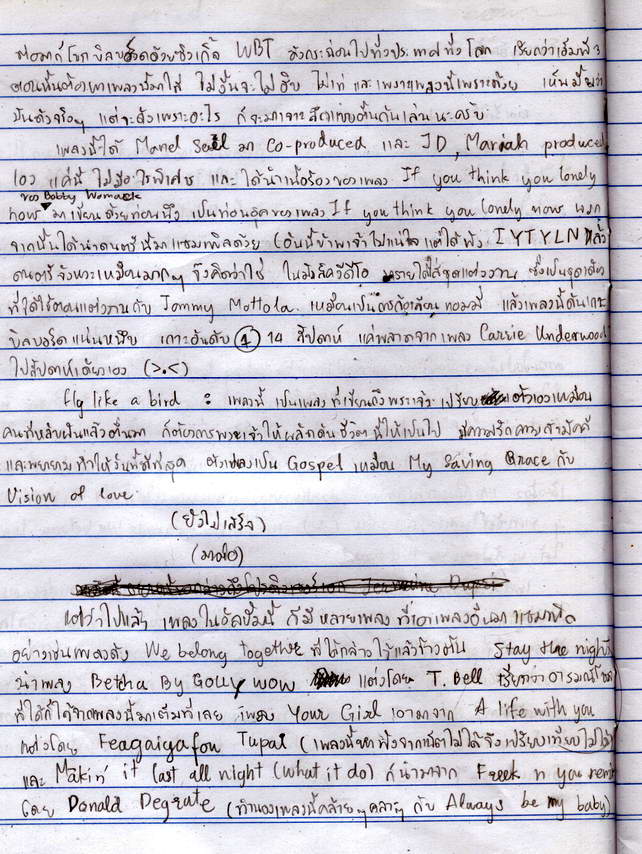 ต่อมาก็โชกบิลบอร์ดด้วยซิงเกิ้ล WBT ดังกระฉ่อนไปทั่วประเทศทั่วโลก เรียกว่าเอ็มพี 3
ตอนนั้นต้องหาเพลงนี้มาใส่ ไม่งั้นจะไม่ฮิป ไม่เท่ และเพราะเพลงนี้เพราะด้วย เห็นมั้ยว่า
มันดังจริงๆ แต่จะดังเพราะอะไร ก็จะมาเจาะลึกแบบตื้นกันเล่นนะครับ
เพลงนี้ได้ Manel Seal มา co-produced และ JD, Mariah produced
เอง แค่นี้ ไม่มีอะไรพิเศษ และได้นำเนื้อร้องของเพลง If you think you lonely
now ของ Bobby Womack มาเขียนด้วยท่อนนึง เป็นท่อนฮุคของเพลง If you think you lonely now นอก
จากนั้นได้นำดนตรีนี้มาแซมเพิลด้วย (อันนี้ข้าพเจ้าไม่แน่ใจ แต่ได้ฟัง IYTYLN แล้ว
ดนตรีจังหวะเหมือนมากๆ จึงคิดว่าใช่ ในมิวสิควีดีโอ มารายใส่ชุดแต่งงาน ซึ่งเป็นชุดเดียว
ที่ได้ใช้ตอนแต่งงานกับ Tommy Mottola เหมือนเป็นการล้อเลียนทอมมี่ แล้วเพลงนี้ดันเกาะ
บิลบอร์ดแน่นหนึบ เกาะอันดับ 1 14 สัปดาห์ แค่พลาดจากเพลง Carrie Underwood
ไปสัปดาห์เดียวเอง (>.<)
fly like a bird : เพลงนี้ เป็นเพลงที่เขียนถึงพระเจ้า เปรียบตัวเองเหมือน
คนที่หลับฝันแล้วตื่นมา ก็ต้องการพระเจ้าให้ผลักดันชีวิตนี้ให้เป็นไป มีความรักความสามัคคี
และพยายามทำให้วันนี้ดีที่สุด ตัวเพลงเป็น Gospel เหมือน My Saving Grace กับ
Vision of love
(ยังไม่เสร็จ)
(มาต่อ)
แต่ว่าไปแล้ว เพลงในอัลบั้มนี้ ก็มีหลายเพลง ที่เอาเพลงอื่นมาแซมเพิล
อย่างเช่นเพลงดัง We belong together ที่ได้กล่าวไว้แล้วข้างต้น Stay the night
นำเพลง Betcha By Golly wow แต่งโดย T. Bell เรียกว่าอารมณ์โซล
ที่ได้ก็ได้จากเพลงนี้มาเต็มที่เลย เพลง Your Girl เอามาจาก A life with you
แต่งโดย Feagaigafou Tupai (เพลงนี้หาฟังจากเน็ตไม่ได้ จึงเปรียบเทียบไม่ได้)
และ Makin' it last all night (what it do) ก็นำมาจาก Freek n you remix
โดย Donald Degrate (ทำนองเพลงนี้คล้ายๆ คลายๆ กับ Always be my baby)